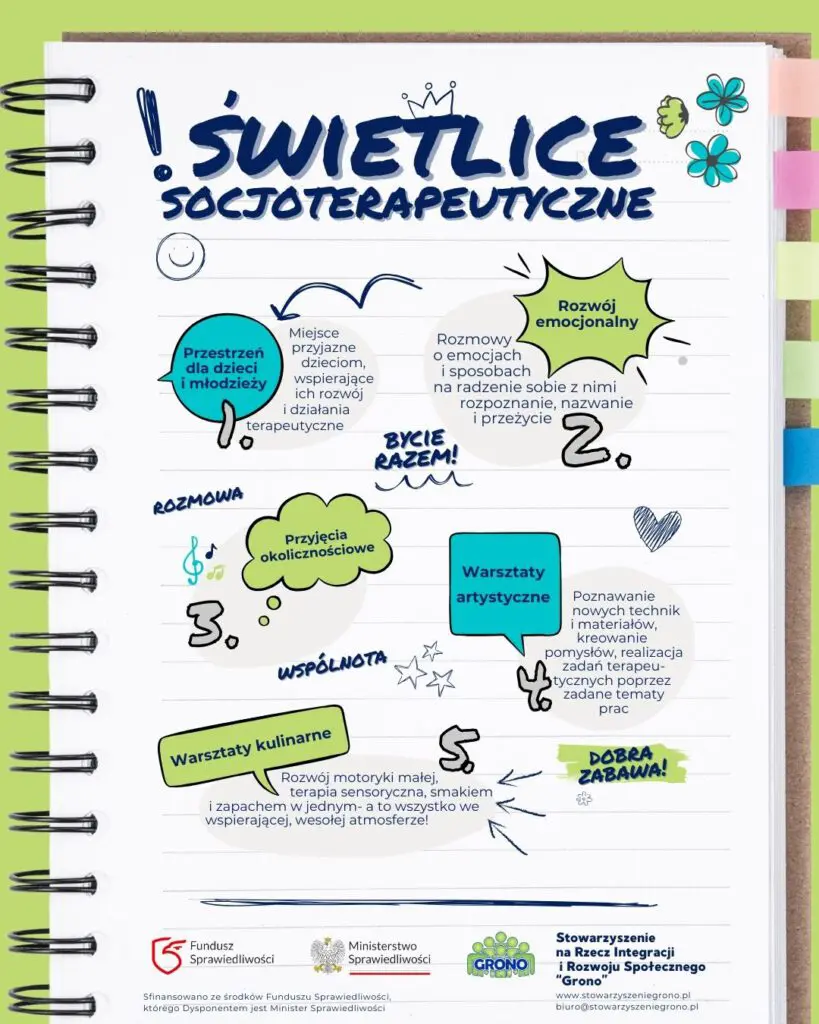 ! ŚWIETLICE
SOCJOTERAPEUTYCZNE
Przestrzeń
dla dzieci
i młodzieży
1.
Miejsce
przyjazne
dzieciom,
wspierające
ich rozwój
i działania
terapeutyczne
Rozwój
emocjonalny
Rozmowy
o emocjach
i sposobach
na radzenie sobie z nimi
rozpoznanie, nazwanie
i przeżycie
2.
BYCIE
RAZEM!
ROZMOWA
Przyjęcia
okolicznościowe
3.
WSPÓLNOTA
Warsztaty
artystyczne
4.
Poznawanie
nowych technik
i materiałów,
kreowanie
pomysłów, realizacja
zadań terapeu-
tycznych poprzez
zadane tematy
prac
Warsztaty kulinarne
5.
Rozwój motoryki małej,
terapia sensoryczna, smakiem
i zapachem w jednym- a to wszystko we
wspierającej, wesołej atmosferze!
DOBRA
ZABAWA!
Fundusz
Sprawiedliwości
Ministerstwo
Sprawiedliwości
GRONO
Stowarzyszenie
na Rzecz Integracji
i Rozwoju Społecznego
"Grono"
www.stowarzyszeniegrono.pl
biuro@stowarzyszeniegrono.pl
Sfinansowano ze środków Funduszu Sprawiedliwości,
którego Dysponentem jest Minister Sprawiedliwości